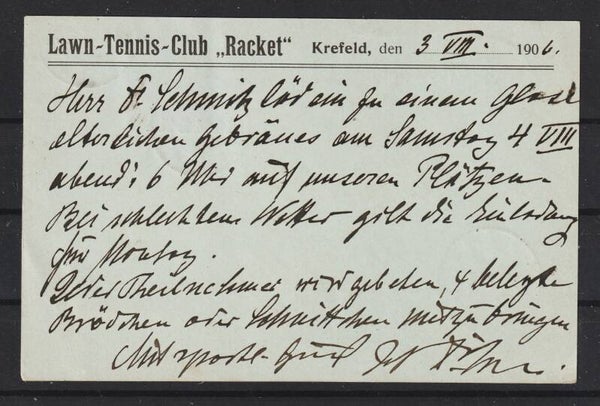 Lawn-Tennis-Club „Racket“ Krefeld, den 3 VIII. 1906.
Herr Fr. Schmitz läd ein zu einem Glase
elterlichen Gebräues am Samstag 4 VIII
abend's 6 Uhr auf unseren Plätzen.
Bei schlechtem Wetter gilt die Einladung
für Montag.
Jeder Theilnehmer wird gebeten, 4 belegte
Brödchen oder Schnittchen mitzubringen
Mit sportl. Gruß